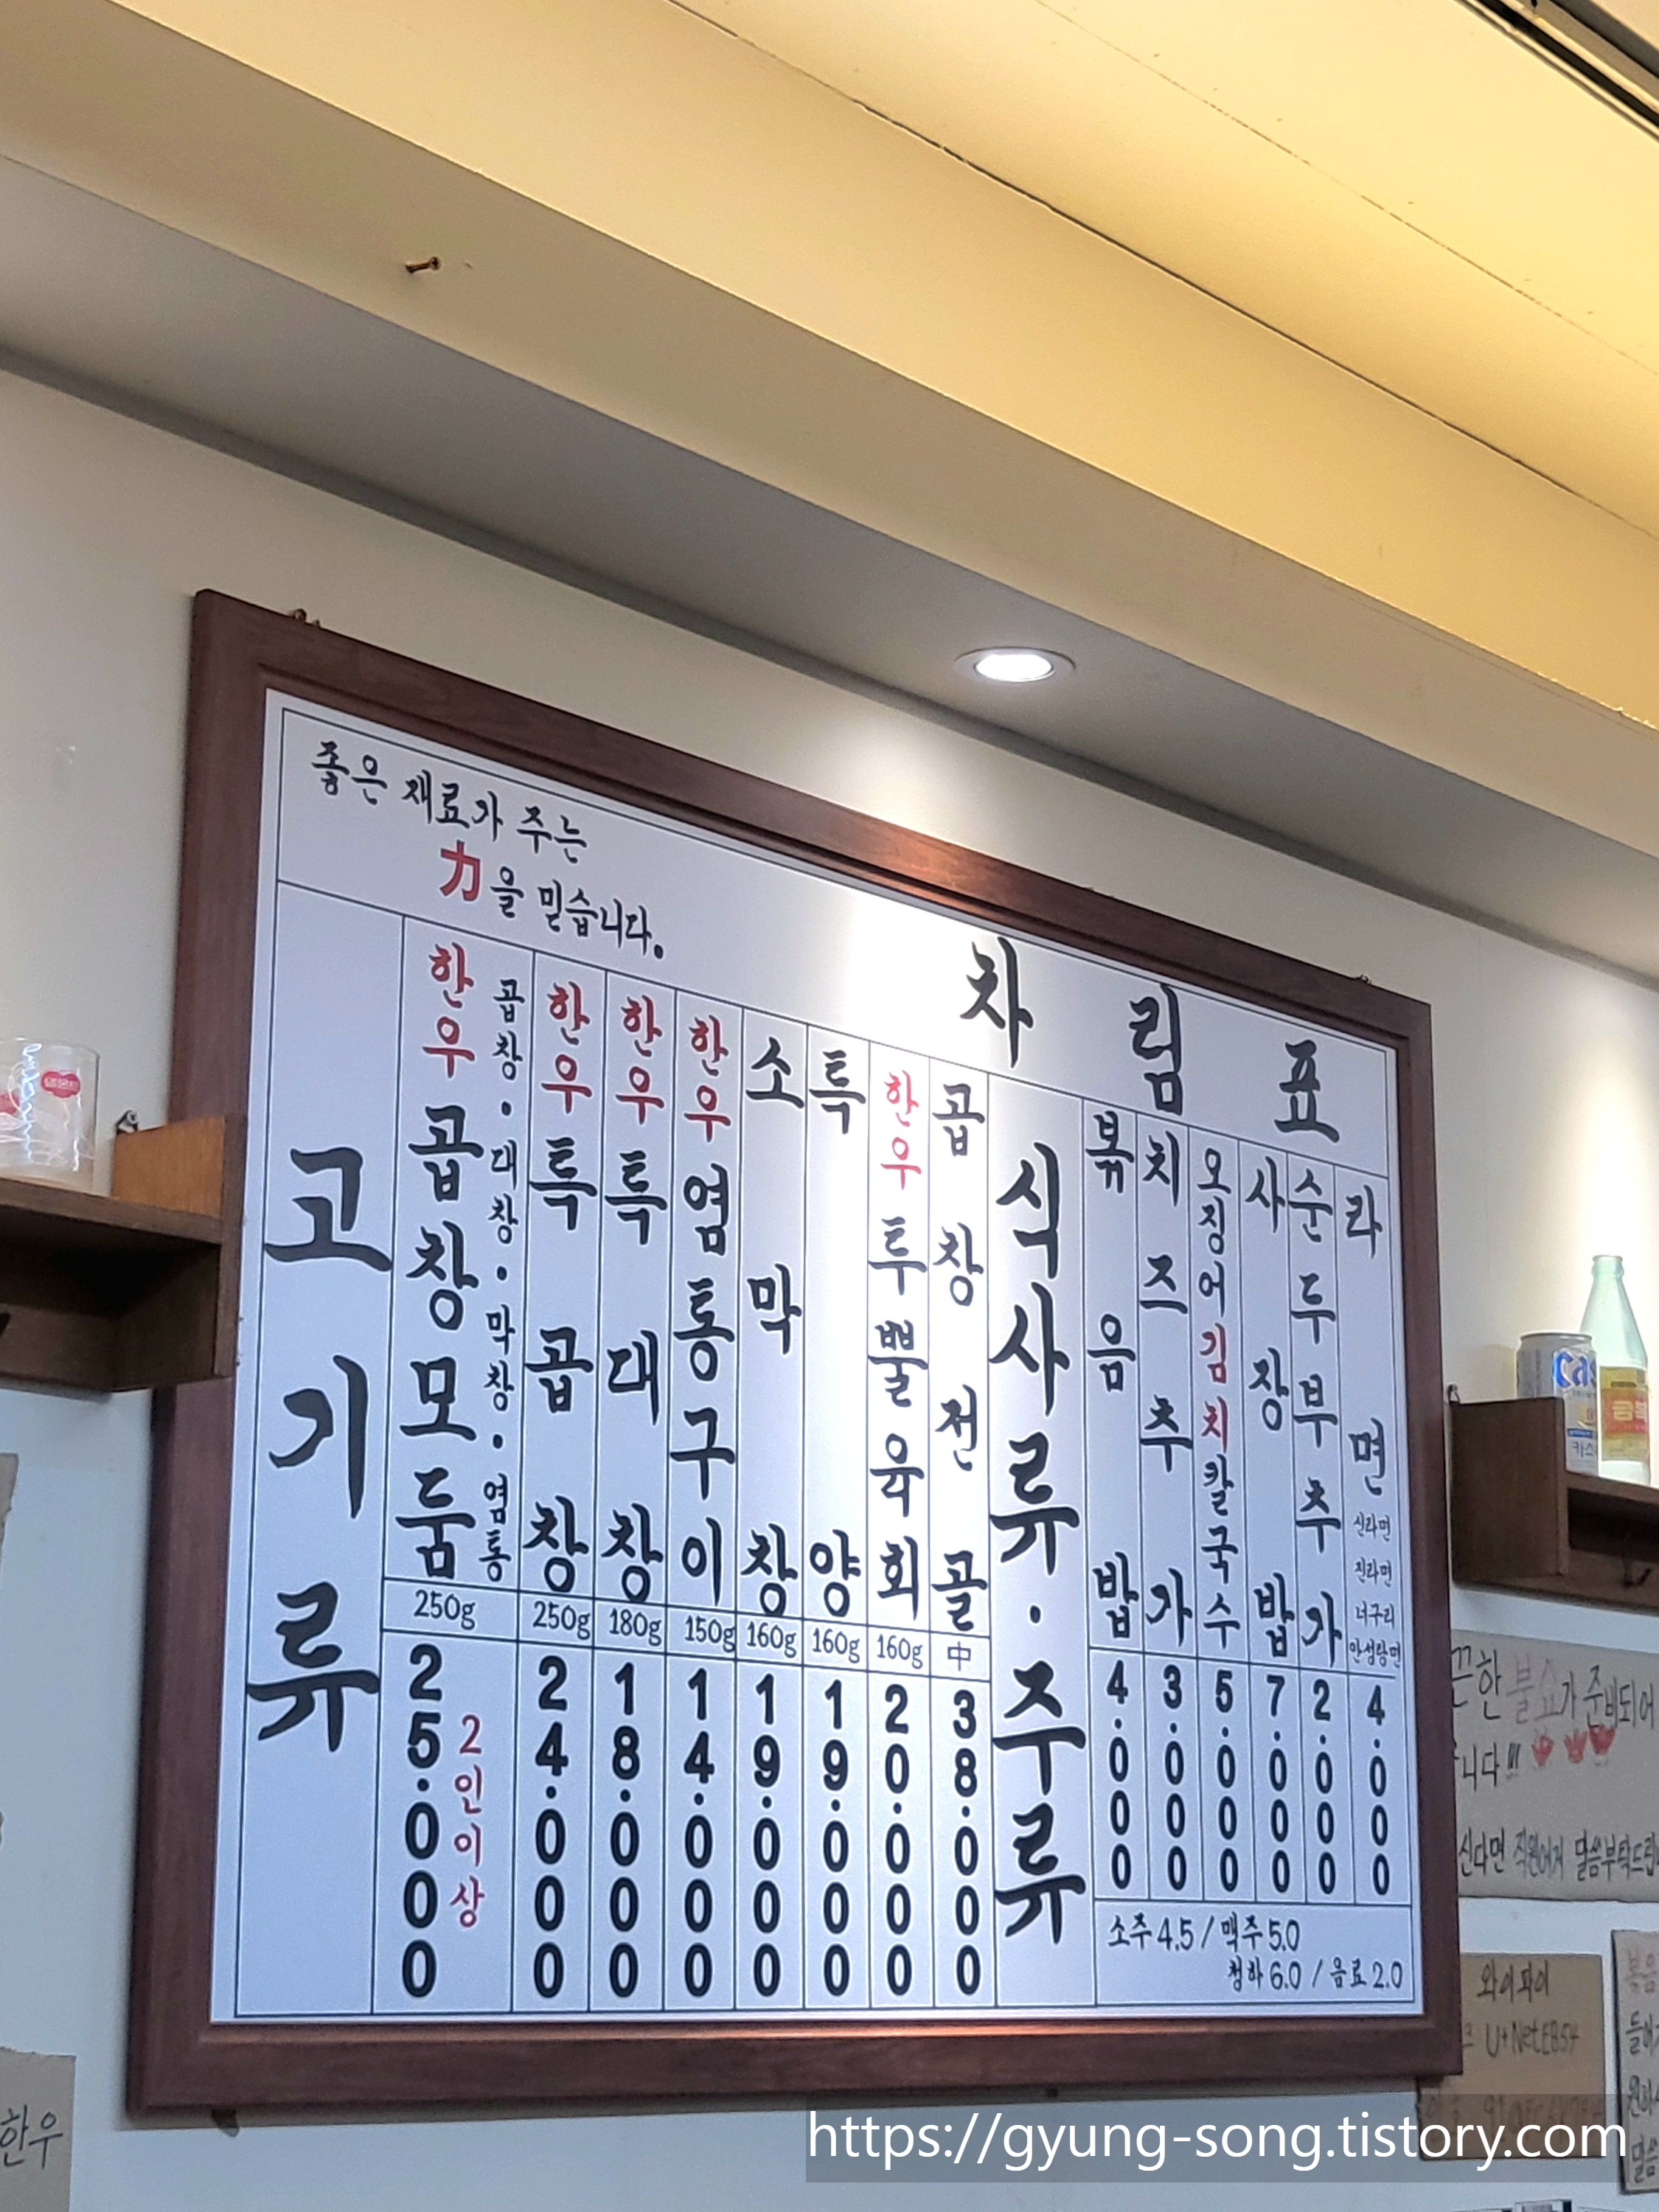 좋은 재료가 주는
力을 믿습니다.
차림표
고기류
한우곱창모둠
곱창·대창·막창·염통
250g
25.000
2인이상
한우특곱창
250g
24.000
한우특대창
180g
18.000
한우염통구이
150g
14.000
소막창
160g
19.000
특양
160g
19.000
한우투뿔육회
160g
20.000
곱창전골
中
38.000
식사류·주류
볶음밥
4.000
치즈추가
3.000
오징어김치칼국수
5.000
사장밥
7.000
순두부추가
2.000
라면
신라면
진라면
너구리
안성탕면
4.000
소주 4.5 / 맥주 5.0
청하 6.0 / 음료 2.0
끈한 불쇼가 준비되어
니다!!!
신다면 직원에게 말씀부탁드립
와이파이
U+NetEB54
한우
카스
https://gyung-song.tistory.com